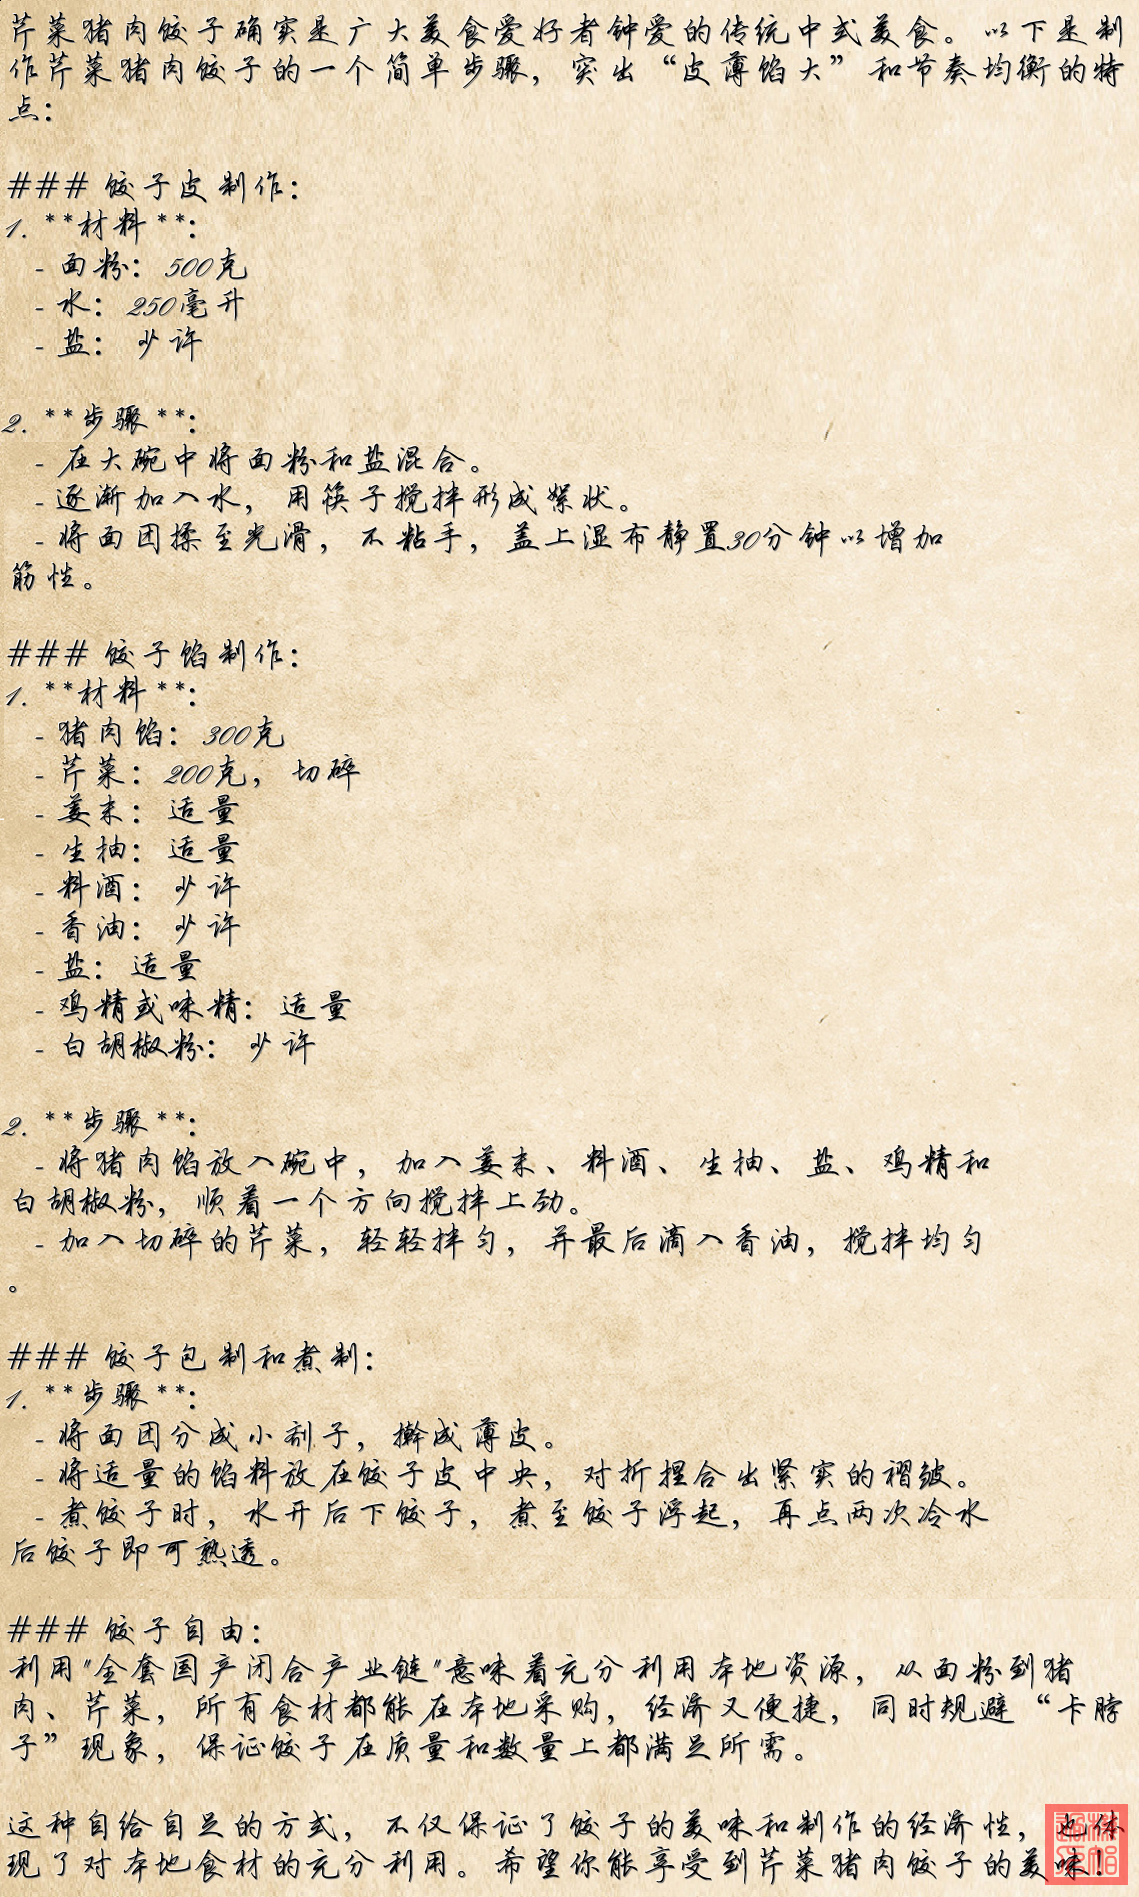 芹菜猪肉饺子确实是广大美食爱好者钟爱的传统中式美食。以下是制
作芹菜猪肉饺子的一个简单步骤，突出“皮薄馅大”和节奏均衡的特
点：
### 饺子皮制作：
1. **材料**：
- 面粉：500克
- 水：250毫升
- 盐：少许
2. **步骤**：
- 在大碗中将面粉和盐混合。
- 逐渐加入水，用筷子搅拌形成絮状。
- 将面团揉至光滑，不粘手，盖上湿布静置30分钟以增加
筋性。
### 饺子馅制作：
1. **材料**：
- 猪肉馅：300克
- 芹菜：200克，切碎
- 姜末：适量
- 生抽：适量
- 料酒：少许
- 香油：少许
- 盐：适量
- 鸡精或味精：适量
- 白胡椒粉：少许
2. **步骤**：
- 将猪肉馅放入碗中，加入姜末、料酒、生抽、盐、鸡精和
白胡椒粉，顺着一个方向搅拌上劲。
- 加入切碎的芹菜，轻轻拌匀，并最后滴入香油，搅拌均匀
。
### 饺子包制和煮制：
1. **步骤**：
- 将面团分成小剂子，擀成薄皮。
- 将适量的馅料放在饺子皮中央，对折捏合出紧实的褶皱。
- 煮饺子时，水开后下饺子，煮至饺子浮起，再点两次冷水
后饺子即可熟透。
### 饺子自由：
利用"全套国产闭合产业链"意味着充分利用本地资源，从面粉到猪
肉、芹菜，所有食材都能在本地采购，经济又便捷，同时规避“卡脖
子”现象，保证饺子在质量和数量上都满足所需。
这种自给自足的方式，不仅保证了饺子的美味和制作的经济性，也体
现了对本地食材的充分利用。希望你能享受到芹菜猪肉饺子的美味！